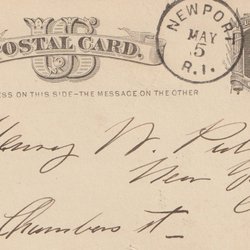 NEWPORT
MAY
5
R.I.
POSTAL CARD.
ESS ON THIS SIDE—THE MESSAGE ON THE OTHER
Henry W.
New
Chambers st